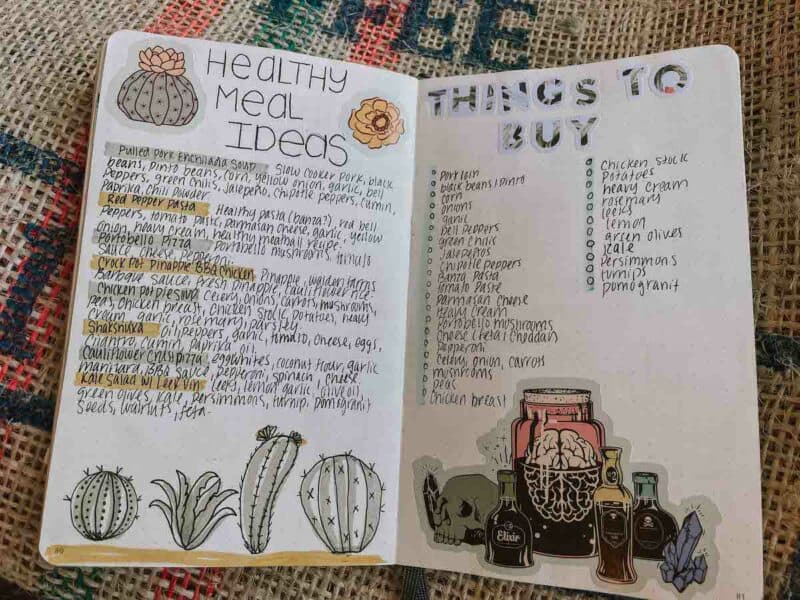 HEALTHY
MEAL
IDEAS
Pulled Pork Enchilada Soup Slow Cooker Pork, black
beans, pinto beans, corn, yellow onion, garlic, bell
Peppers, green chilis, Jalapeño, Chipotle peppers, cumin,
Paprika, Chili Powder
Red Pepper Pasta Healthy pasta (banza?), red bell
Peppers, tomato paste, parmasan cheese, garlic, yellow
onion, heavy cream, healthy meatball recipe.
Portobello Pizza Portobello mushrooms,
Sauce, Cheese, Pepperoni
Crock Pot Pineapple BBQ Chicken Pineapple, walden farms
Barbaque sauce, fresh pineapple, cauliflower rice
Chicken Pot Pie Soup Celery, onions, carrots, mushrooms,
peas, chicken breast, chicken stock, potatoes, heavy
cream, garlic, rosemary, parsley
Shakshuka oil, peppers, garlic, tomato, cheese, eggs,
Cilantro, cumin, paprika, oil
Cauliflower Crust Pizza eggwhites, coconut flour, garlic
marinara, BBQ sauce, pepperoni, spinach, cheese
Kale Salad w/ Leek Vin. Leeks, lemon garlic, olive oil,
green olives, kale, persimmons, turnip, pomogranit
Seeds, walnuts, feta.
THINGS TO
BUY
Port loin
black beans | pinto
corn
onions
garlic
bell peppers
green chilis
Jalapeños
Chipotle peppers
Banza Pasta
Tomato Paste
Parmasan Cheese
Heavy Cream
Portobello mushrooms
Cheese (feta | cheddar)
Pepperoni
Celery, onion, carrots
mushrooms
peas
chicken breast
Chicken Stock
Potatoes
heavy cream
rosemary
leeks
lemon
green olives
kale
persimmons
turnips
pomogranit
Elixir